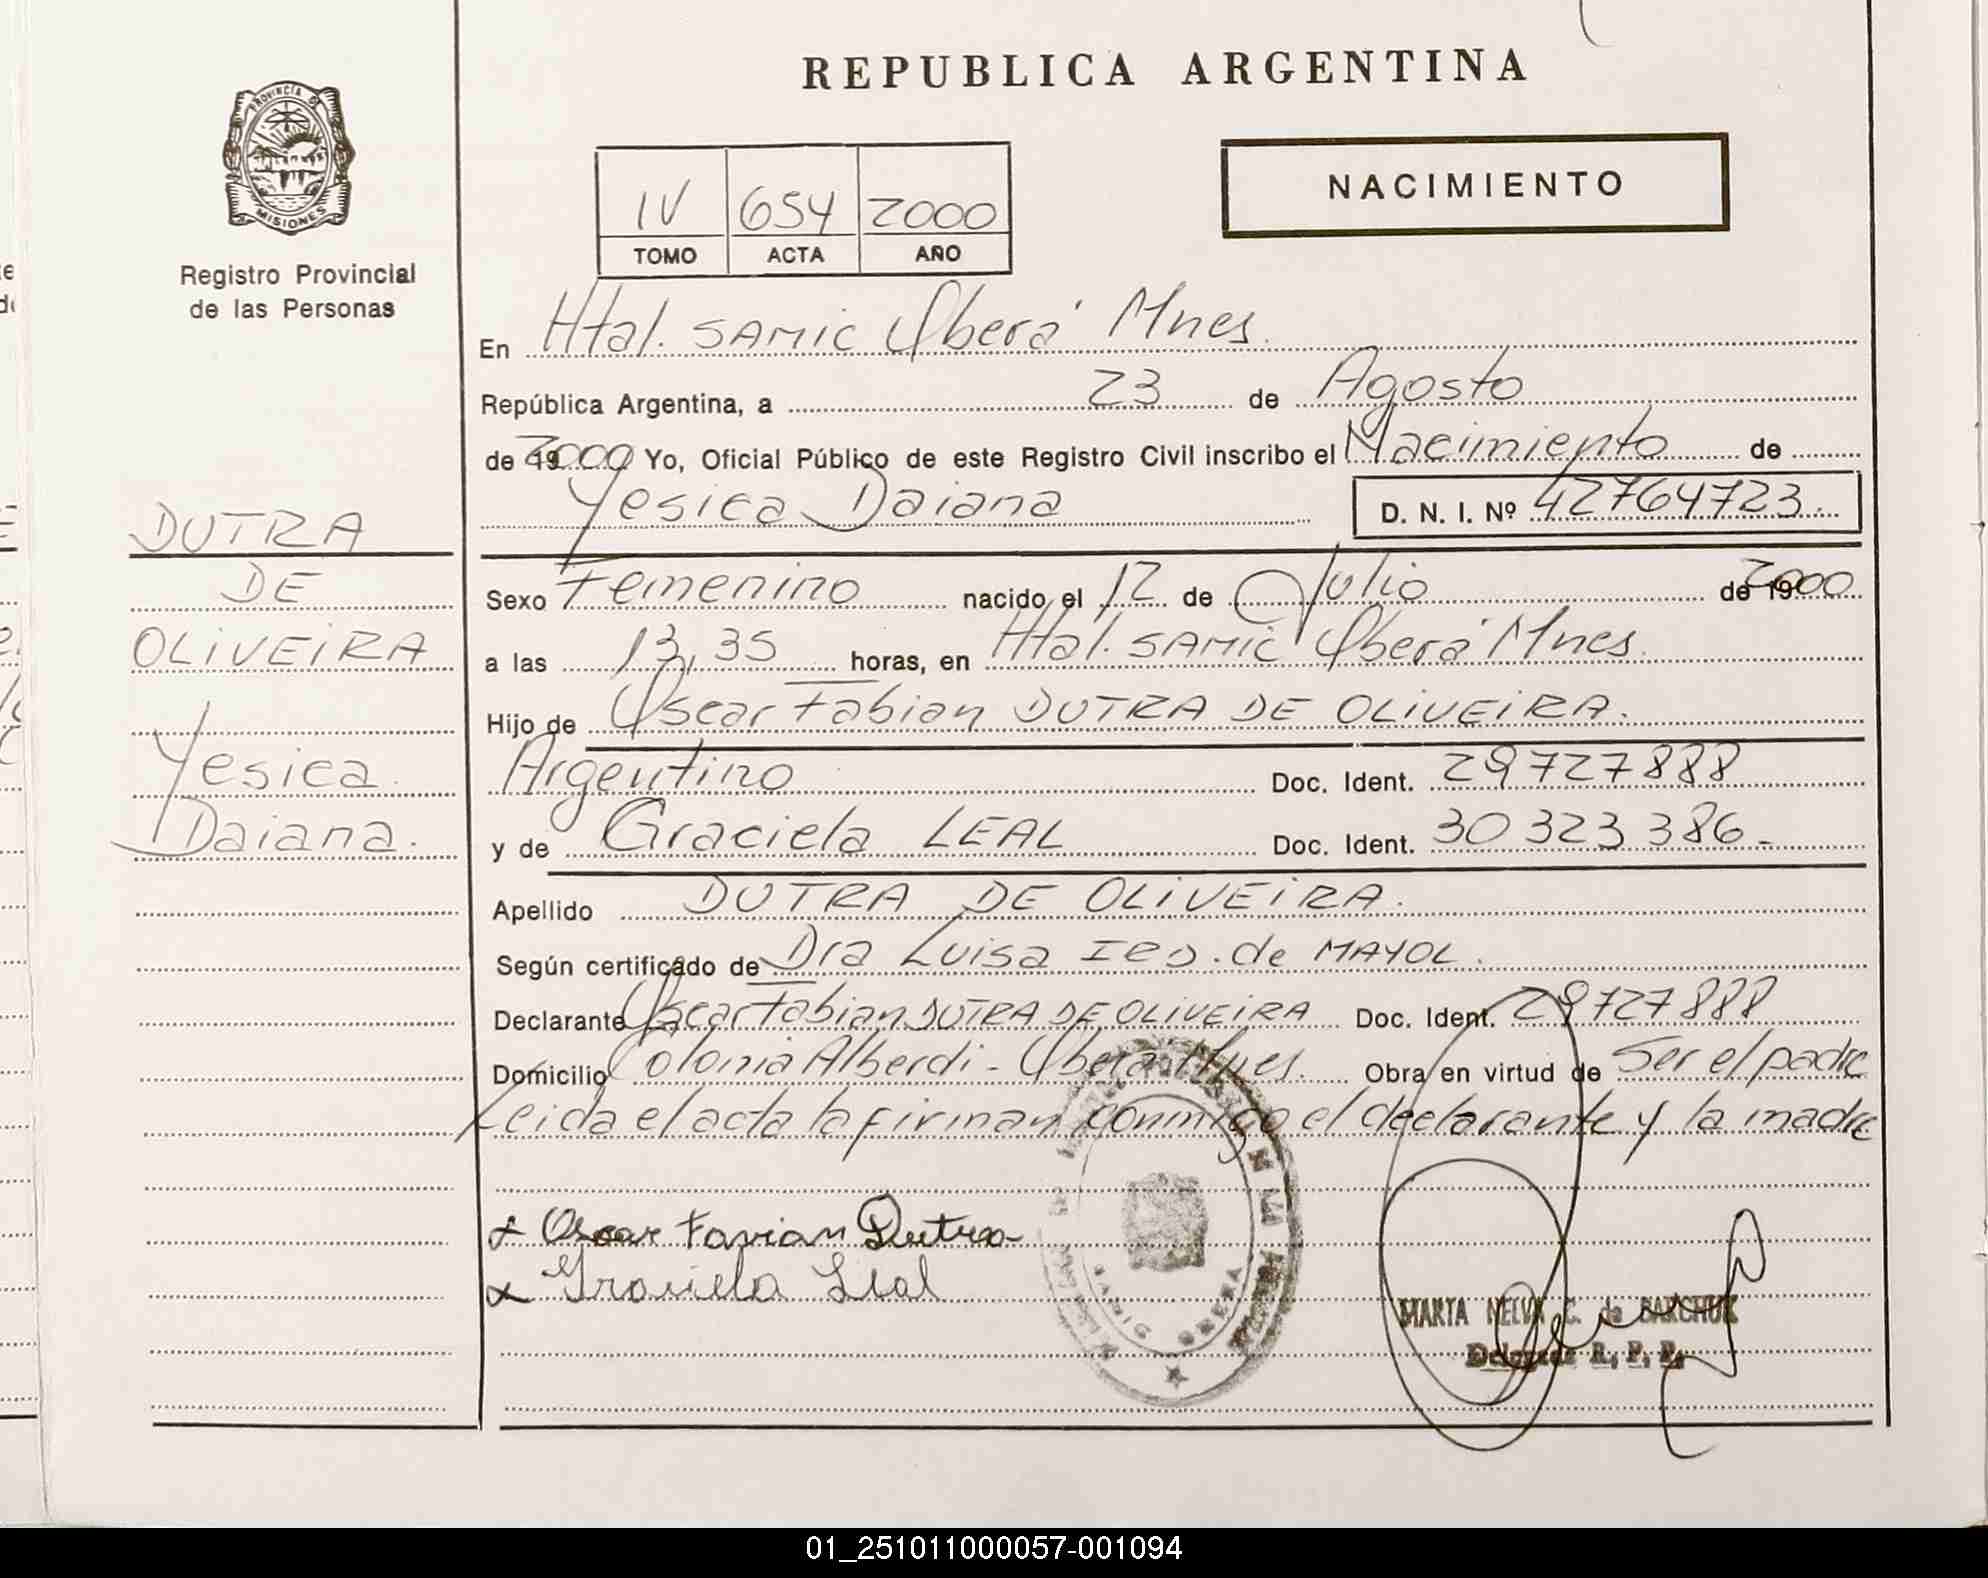 REPUBLICA ARGENTINA
PROVINCIA DE
MISIONES
Registro Provincial
de las Personas
NACIMIENTO
IV 654 2000
TOMO ACTA AÑO
En Htal. SAMIC Oberá Mnes.
República Argentina, a 23 de Agosto
de 2000 Yo, Oficial Público de este Registro Civil inscribo el Nacimiento de
Yesica Daiana D. N. I. Nº 42764723.
DUTRA
DE
OLIVEIRA
Yesica
Daiana.
Sexo Femenino nacido el 12 de Julio de 2000
a las 13,35 horas, en Htal. SAMIC Oberá Mnes.
Hijo de Oscar Fabian DUTRA DE OLIVEIRA.
Argentino Doc. Ident. 29727888
y de Graciela LEAL Doc. Ident. 30323386.-
Apellido DUTRA DE OLIVEIRA.
Según certificado de Dra Luisa de MAYOL.
Declarante Oscar Fabian DUTRA DE OLIVEIRA Doc. Ident. 29727888
Domicilio Colonia Alberdi - Oberá Mnes. Obra en virtud de Ser el padre
Leida el acta la firman conmigo el declarante y la madre
x Oscar Favian Dutra
x Graciela Leal
MARTA NELVA C. de
Delegada R. P. P.
01_251011000057-001094